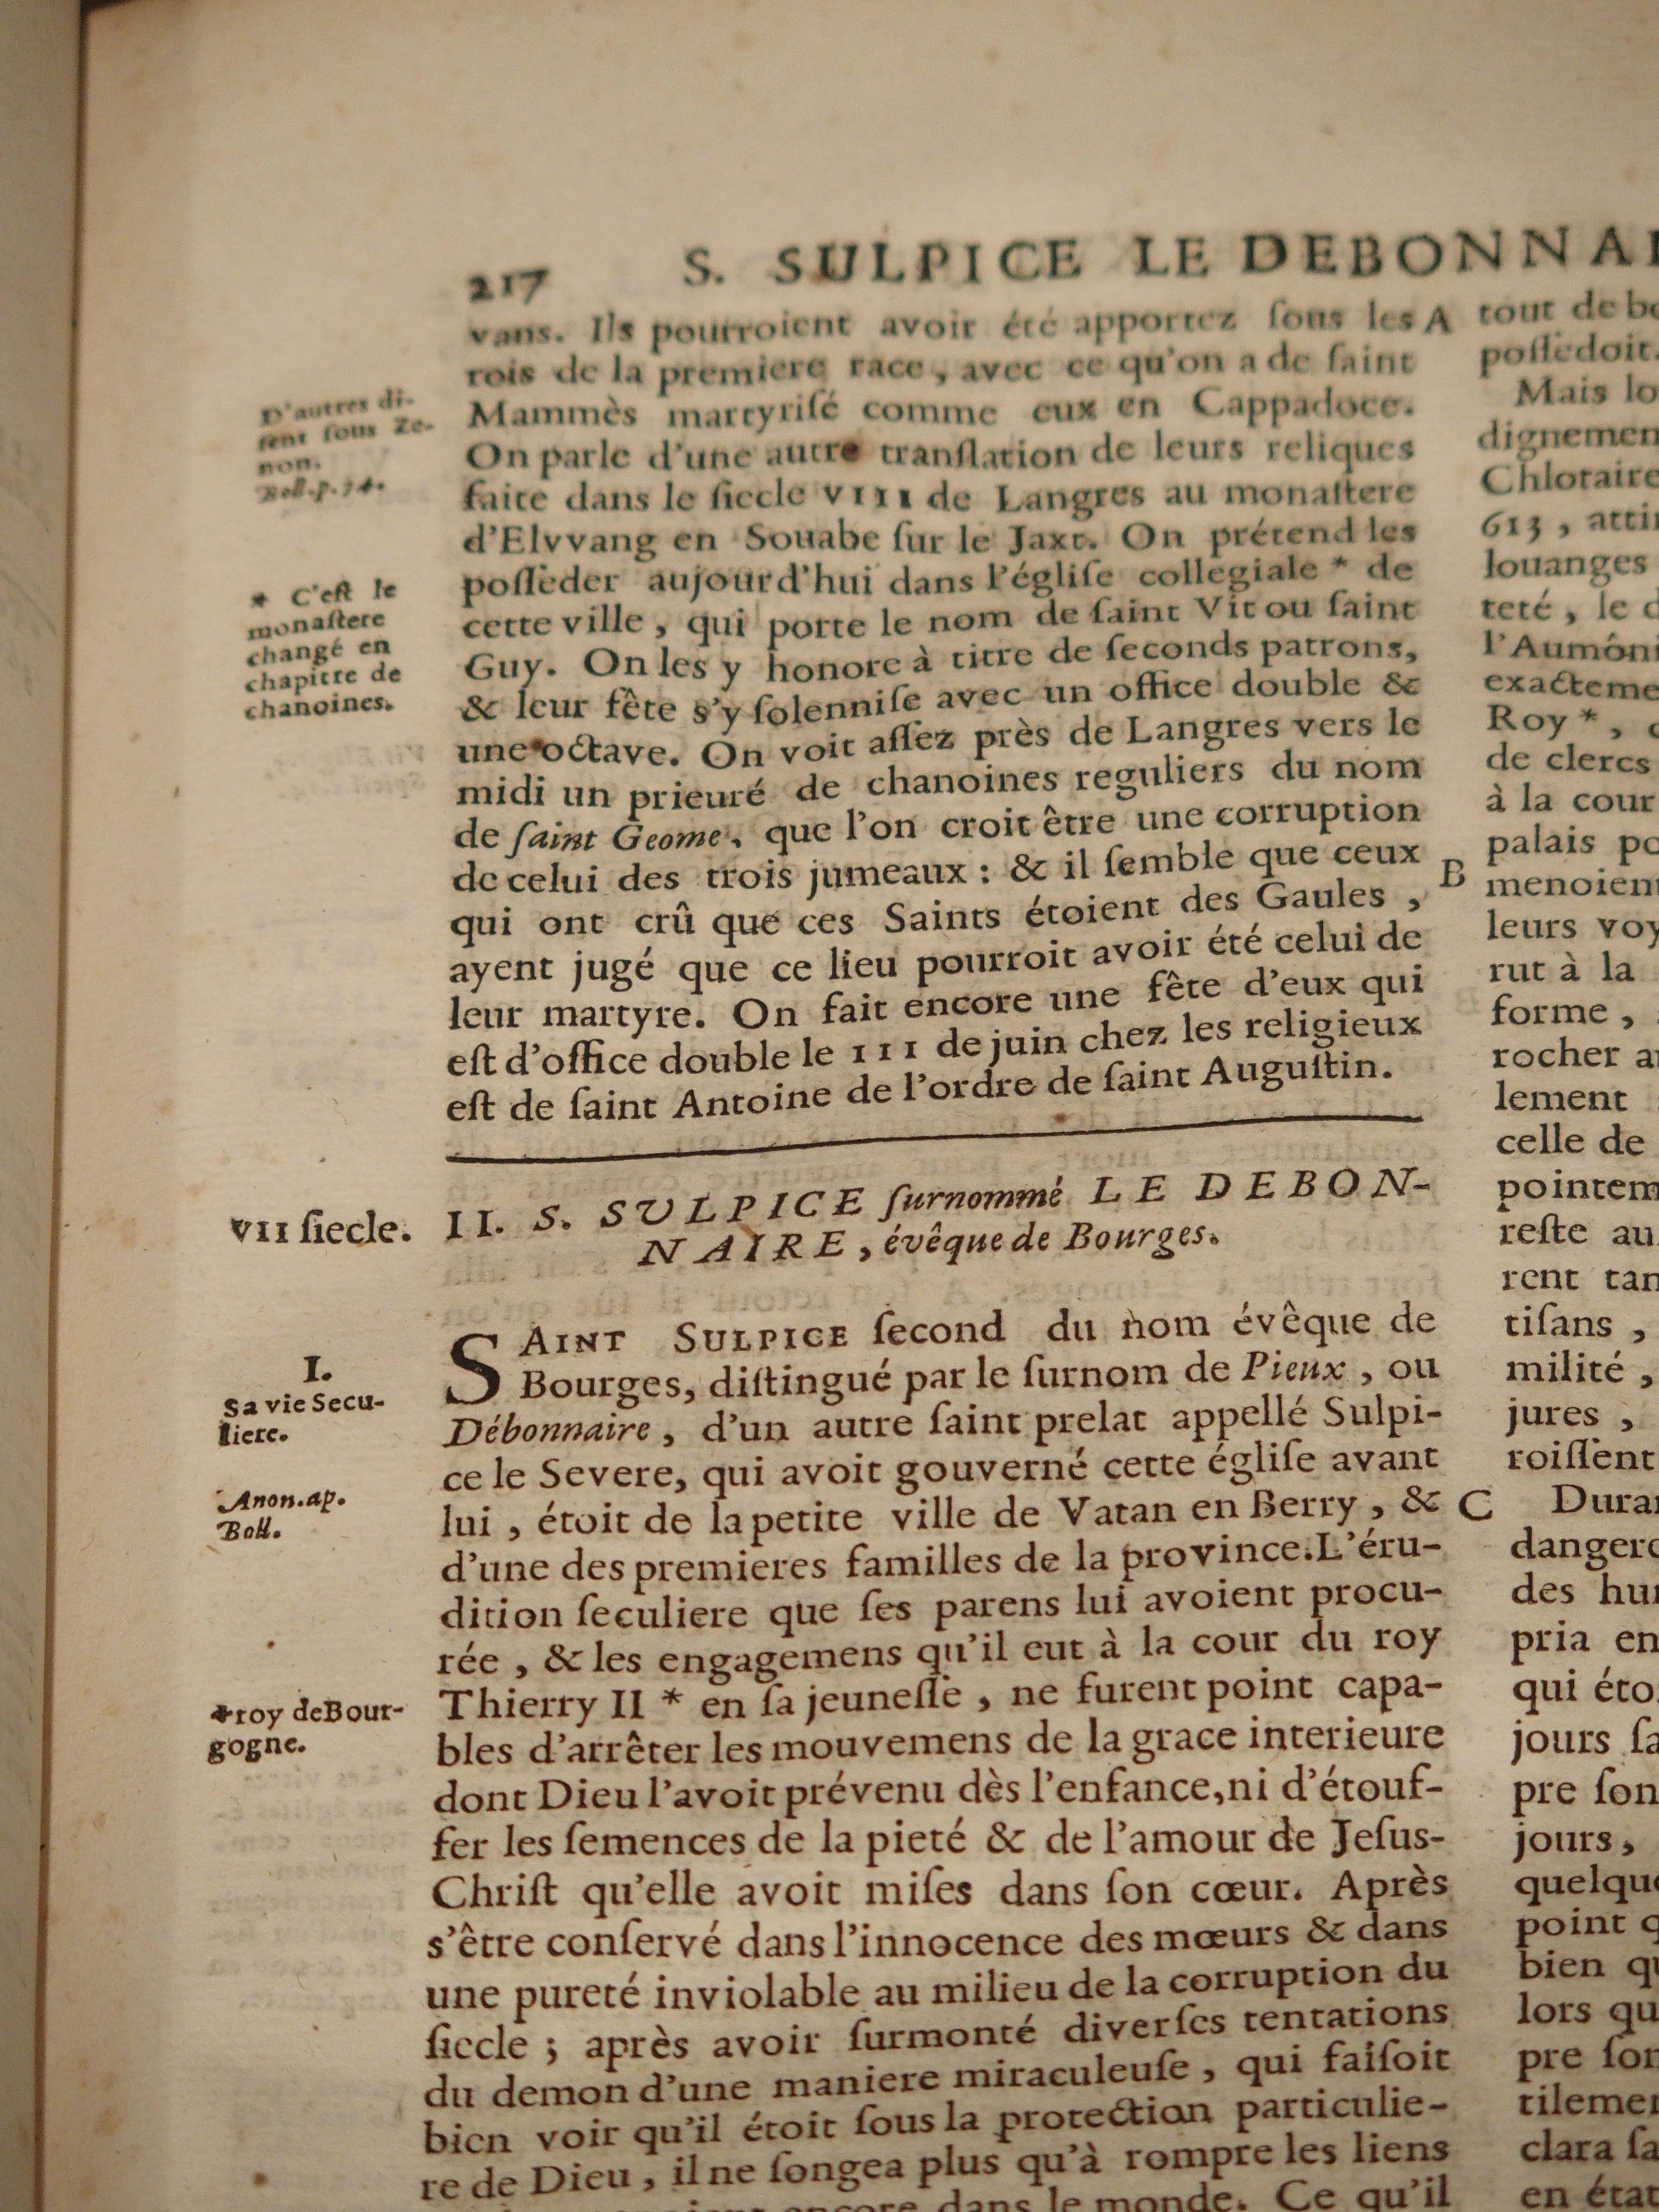 217 S. SULPICE LE DEBONNAI
vans. Ils pourroient avoir été apportez ſous les A
rois de la premiere race, avec ce qu'on a de ſaint
Mammès martyriſé comme eux en Cappadoce.
On parle d'une autre tranſlation de leurs reliques
faite dans le ſiecle VIII de Langres au monaſtere
d'Elvvang en Souabe ſur le Jaxt. On prétend les
poſſeder aujourd'hui dans l'égliſe collegiale * de
cette ville, qui porte le nom de ſaint Vit ou ſaint
Guy. On les y honore à titre de ſeconds patrons,
& leur fête s'y ſolenniſe avec un office double &
une octave. On voit aſſez près de Langres vers le
midi un prieuré de chanoines reguliers du nom
de ſaint Geome, que l'on croit être une corruption
de celui des trois jumeaux : & il ſemble que ceux
B
qui ont crû que ces Saints étoient des Gaules ,
ayent jugé que ce lieu pourroit avoir été celui de
leur martyre. On fait encore une fête d'eux qui
eſt d'office double le III de juin chez les religieux
eſt de ſaint Antoine de l'ordre de ſaint Auguſtin.
D'autres di-
ſent ſous Ze-
non.
Boll. p. 74.
* C'eſt le
monaſtere
changé en
chapitre de
chanoines.
VII ſiecle.
II. S. SULPICE ſurnommé LE DEBON-
NAIRE, évêque de Bourges.
I.
Sa vie Secu-
liere.
Anon. ap.
Boll.
*roy de Bour-
gogne.
SAINT SULPICE ſecond du nom évêque de
Bourges, diſtingué par le ſurnom de Pieux , ou
Débonnaire , d'un autre ſaint prelat appellé Sulpi-
ce le Severe, qui avoit gouverné cette égliſe avant
lui , étoit de la petite ville de Vatan en Berry , & C
d'une des premieres familles de la province. L'éru-
dition ſeculiere que ſes parens lui avoient procu-
rée , & les engagemens qu'il eut à la cour du roy
Thierry II * en ſa jeuneſſe , ne furent point capa-
bles d'arrêter les mouvemens de la grace interieure
dont Dieu l'avoit prévenu dès l'enfance, ni d'étouf-
fer les ſemences de la pieté & de l'amour de Jeſus-
Chriſt qu'elle avoit miſes dans ſon cœur. Après
s'être conſervé dans l'innocence des mœurs & dans
une pureté inviolable au milieu de la corruption du
ſiecle ; après avoir ſurmonté diverſes tentations
du demon d'une maniere miraculeuſe , qui faiſoit
bien voir qu'il étoit ſous la protection particulie-
re de Dieu , il ne ſongea plus qu'à rompre les liens
encore dans le monde. Ce qu'il
tout de bo
poſſedoit.
Mais lo
dignemen
Chlotaire
613 , atti
louanges
teté , le d
l'Aumôni
exacteme
Roy * ,
de clercs
à la cour
palais po
menoient
leurs voy
rut à la
forme ,
rocher a
lement
celle de
pointem
reſte au
rent tan
tiſans ,
milité ,
jures ,
roiſſent
Duran
dangere
des hu
pria en
qui éto
jours ſa
pre ſon
jours ,
quelqu
point q
bien qu
lors qu
pre ſon
tileme
clara ſa
en état